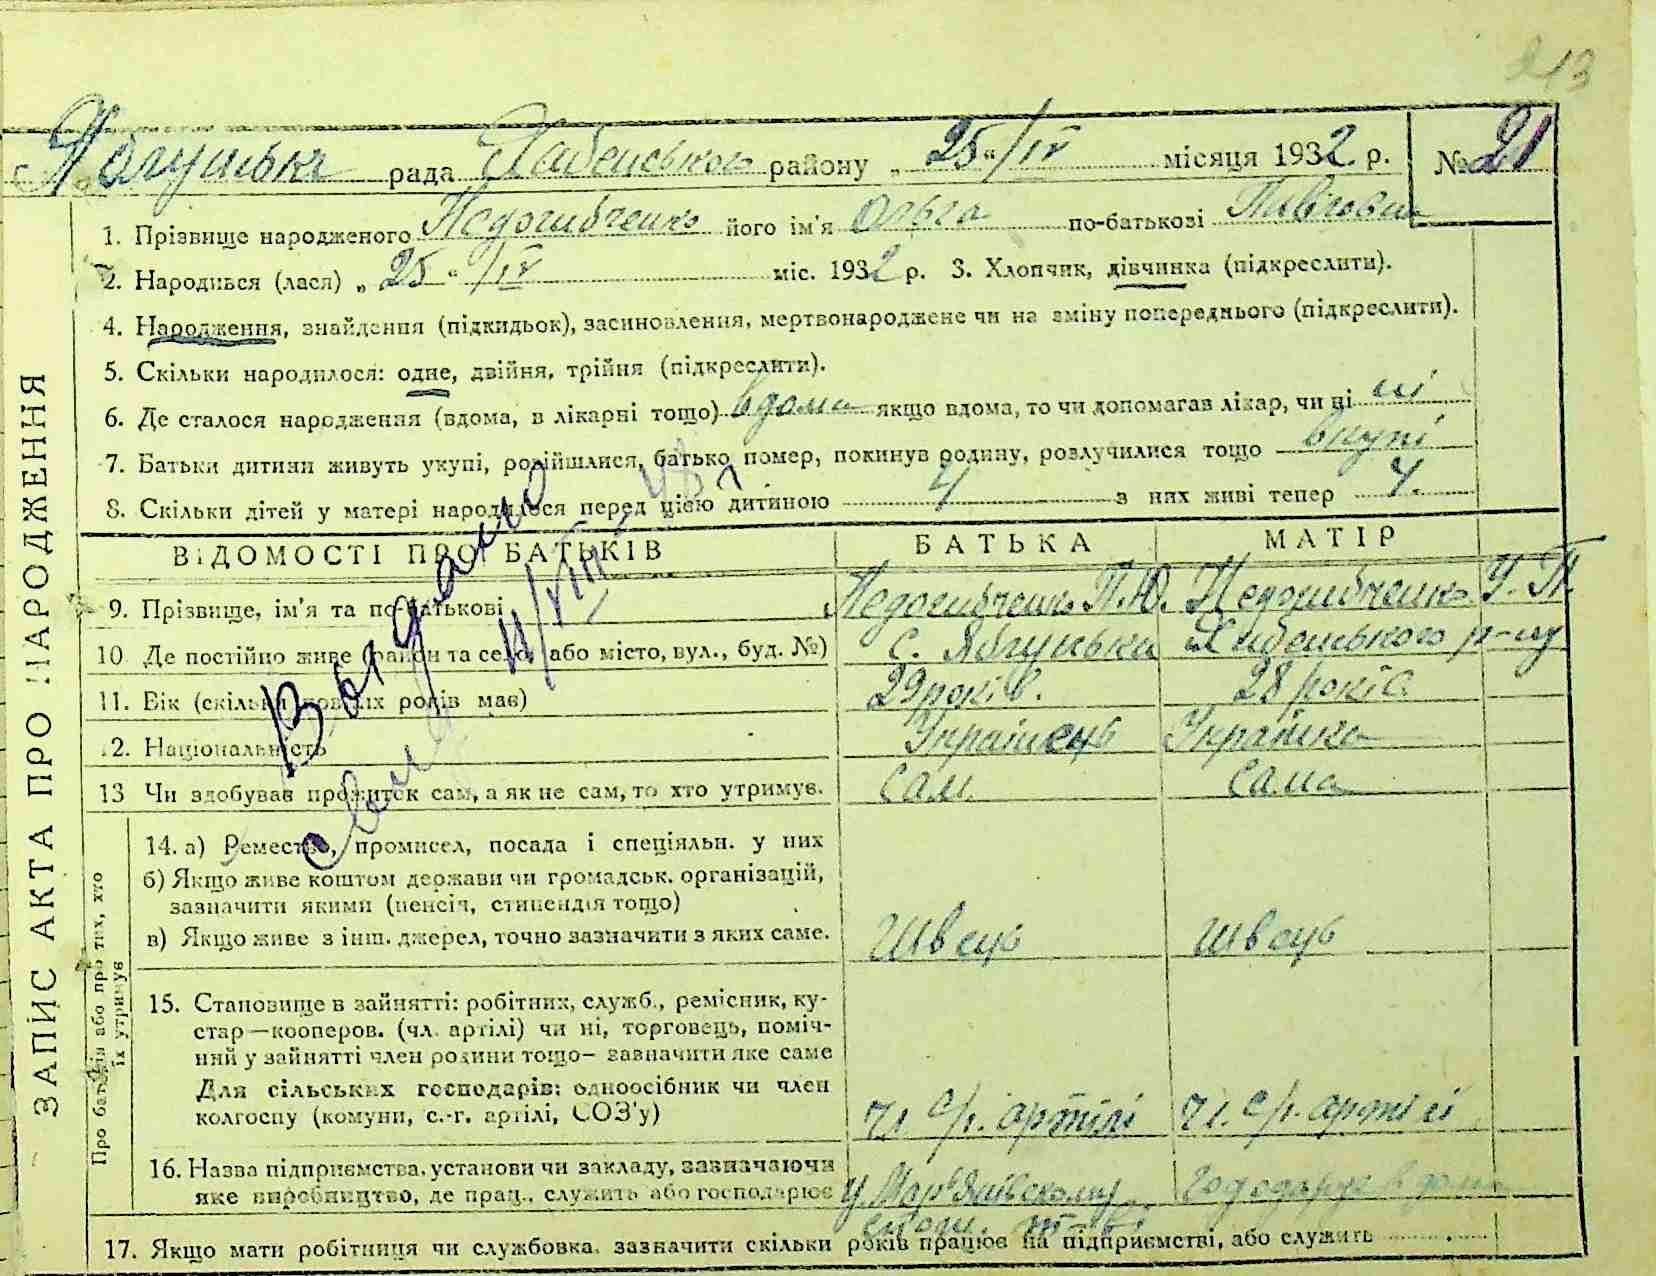 213
рада району „25“/IV місяця 1932 р. № 21
1. Прізвище народженого Недогибченко його ім'я Ольга по-батькові
2. Народився (лася) „25“ /IV міс. 1932 р. 3. Хлопчик, дівчинка (підкреслити).
4. Народження, знайдення (підкидьок), засиновлення, мертвонароджене чи на зміну попереднього (підкреслити).
5. Скільки народилося: одне, двійня, трійня (підкреслити).
6. Де сталося народження (вдома, в лікарні тощо) вдома якщо вдома, то чи допомагав лікар, чи ні ні
7. Батьки дитини живуть укупі, розійшлися, батько помер, покинув родину, розлучилися тощо вкупі
8. Скільки дітей у матері народилося перед цією дитиною 4 з них живі тепер 4.
ВІДОМОСТІ ПРО БАТЬКІВ БАТЬКА МАТІР
9. Прізвище, ім'я та по-батькові Недогибченко П.Ю. Недогибченко У.П.
10 Де постійно живе (район та село, або місто, вул., буд. №) с. р-ну
11. Вік (скільки повних років має) 29 років. 28 років
12. Національність Українець Українка
13 Чи здобував прожиток сам, а як не сам, то хто утримує. Сам. Сама
14. а) Ремество, промисел, посада і спеціяльн. у них
б) Якщо живе коштом держави чи громадськ. організацій,
зазначити якими (пенсія, стипендія тощо)
в) Якщо живе з інш. джерел, точно зазначити з яких саме. Швець Швець
15. Становище в зайнятті: робітник, служб., ремісник, ку-
стар—кооперов. (чл. артілі) чи ні, торговець, поміч-
ний у зайнятті член родини тощо— зазначити яке саме
Для сільських господарів: одноосібник чи член
колгоспу (комуни, с.-г. артілі, СОЗ'у) чл. с/г. артілі чл. с/г. артілі
16. Назва підприємства, установи чи закладу, зазначаючи
яке виробництво, де прац., служить або господарює
17. Якщо мати робітниця чи службовка, зазначити скільки років працює на підприємстві, або служить
ЗАПИС АКТА ПРО НАРОДЖЕННЯ
Про батьків або про тих, хто
їх утримує
Выдано